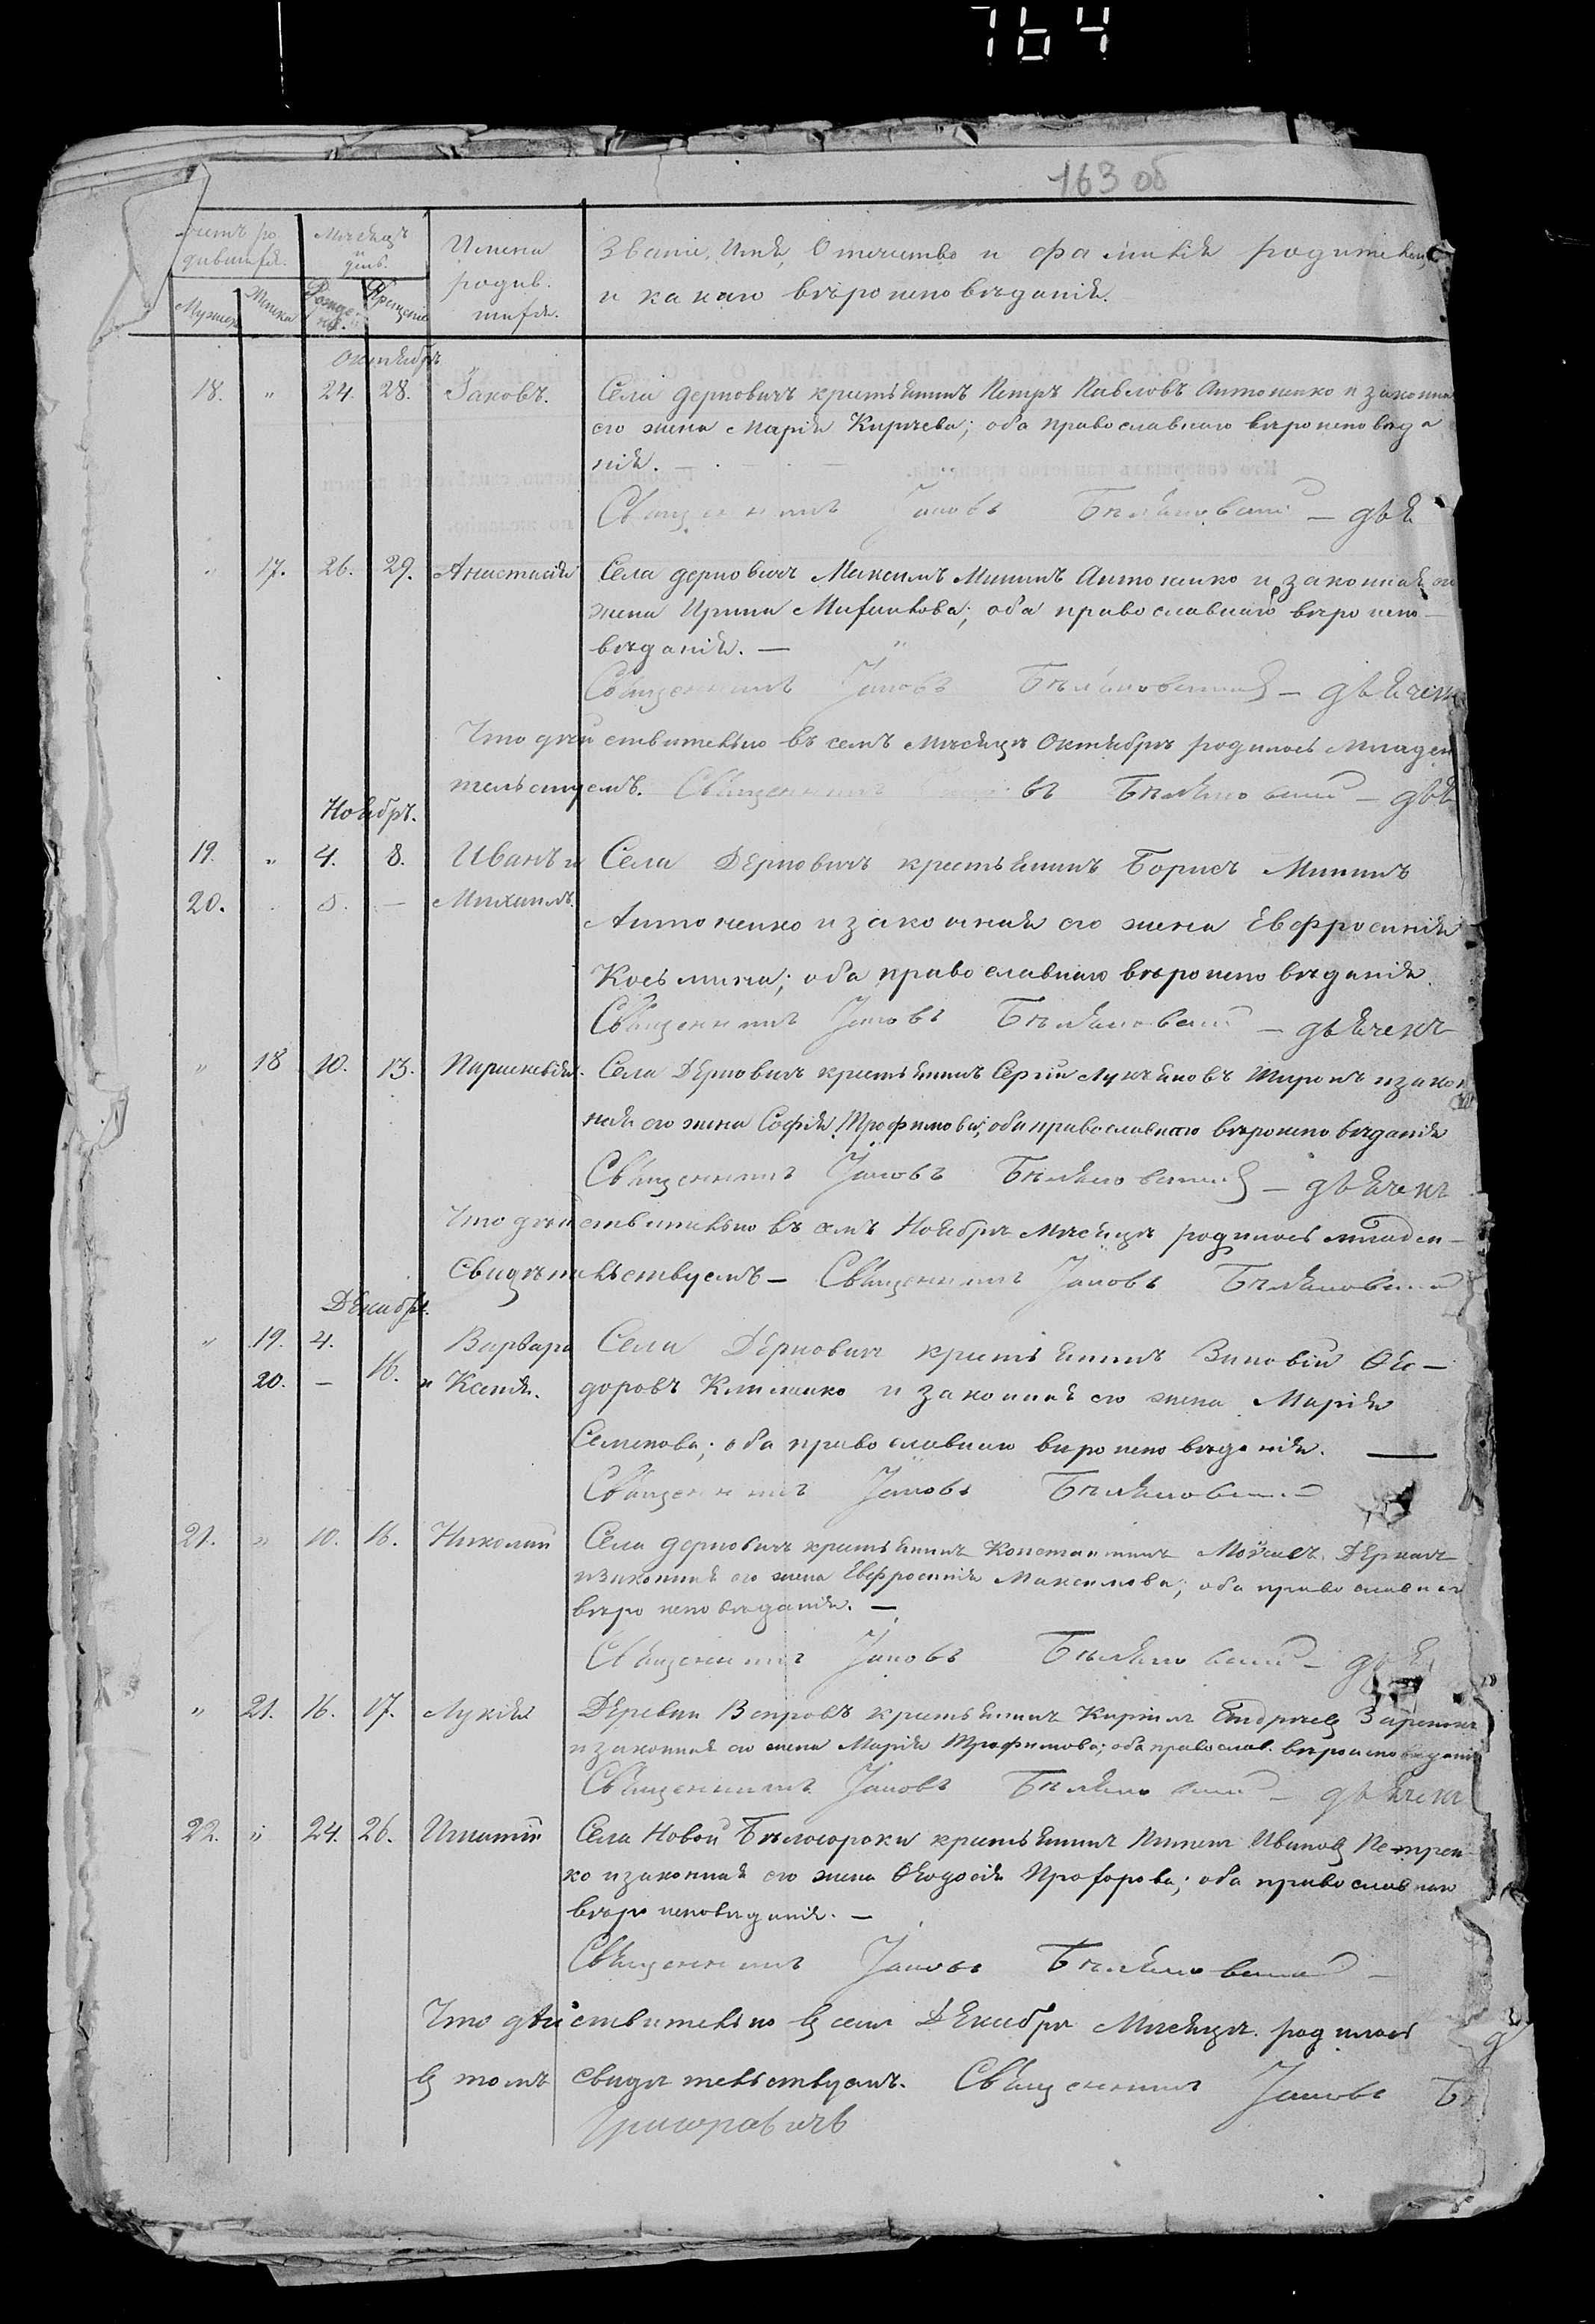 764
163 об
Счетъ ро
дившихся.
Мѣсяцъ
и
день.
Имена
родив.
шихся.
Званіе, Имя, Отчество и фамилія родителей,
и какаго вѣроисповѣданія.
Мужеск
Женска
Рожде-
нія.
Крещенія
Октябрь
18. " 24. 28. Іаковъ. Села Дерновичъ крестьянинъ Петръ Павловъ Антоненко и законная
его жена Марія Кирѣева; оба православнаго вѣроисповѣда
нія.
Священникъ Іаковъ Бѣляновскій — дья
" 17. 26. 29. Анастасія Села Дерновичъ Максимъ Мининъ Антоненко и законная его
жена Ирина Михайлова; оба православнаго вѣроиспо-
вѣданія. —
Священникъ Іаковъ Бѣляновскій — дьячекъ
Что дѣйствительно въ семъ мѣсяцѣ Октябрѣ родилось младен
тельствуемъ. Священникъ въ Бѣляновскій — дья
Ноябрь.
19. " 4. 8. Иванъ и Села Дерновичъ крестьянинъ Борисъ Мининъ
20. . 5. — Михаилъ.
Антоненко и законная его жена Евфросинія
Косьмина; оба православнаго вѣроисповѣданія.
Священникъ Іаковъ Бѣляновскій — дьячекъ
" 18 10. 13. Параскевія. Села Дерновичъ крестьянинъ Сергій Лукьяновъ и закон
ная его жена Софія Трофимова; оба православнаго вѣроисповѣданія
Священникъ Іаковъ Бѣляновскій — дьячекъ
Что дѣйствительно въ семъ Ноябрѣ мѣсяцѣ родилось младен-
Свидѣтельствуемъ — Священникъ Іаковъ Бѣляновскій
Декабрь.
" 19. 4. Варвара Села Дерновичъ крестьянинъ Зиновій Ѳео-
20. — 16. " Ксенія. доровъ Клименко и законная его жена Марія
Семенова; оба православнаго вѣроисповѣданія. —
Священникъ Іаковъ Бѣляновскій
21. " 10. 16. Николай Села Дерновичъ крестьянинъ Константинъ Моѵсеевъ Деркачъ
и законная его жена Евфросинія Максимова; оба православнаго
вѣроисповѣданія. —
Священникъ Іаковъ Бѣляновскій — дья
" 21. 16. 17. Лукія Деревни Вепровъ крестьянинъ Кирилъ Андреевъ
и законная его жена Марія Трофимова; оба православ. вѣроисповѣданія
Священникъ Іаковъ Бѣляновскій — дьячекъ
22. " 24. 26. Игнатій Села Новой Бѣлосороки крестьянинъ Пименъ Ивановъ Петрен-
ко и законная его жена Ѳеодосія Прохорова; оба православнаго
вѣроисповѣданія. —
Священникъ Іаковъ Бѣляновскій —
Что дѣйствительно въ семъ Декабрѣ мѣсяцѣ родилось
въ томъ свидѣтельствуемъ. Священникъ Іаковъ Бѣ
Григоровичъ